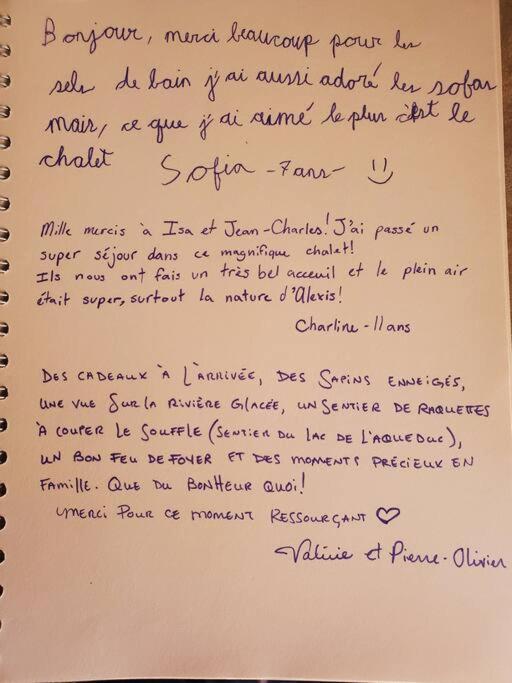 Bonjour, merci beaucoup pour les
sels de bain j'ai aussi adoré les sofas
mais, ce que j'ai aimé le plus c'est le
chalet Sofia -7ans-
Mille mercis à Isa et Jean-Charles! J'ai passé un
super séjour dans ce magnifique chalet!
Ils nous ont fais un très bel acceuil et le plein air
était super, surtout la nature d'Alexis!
Charline -11ans
DES CADEAUX À L'ARRIVÉE, DES SAPINS ENNEIGÉS,
UNE VUE SUR LA RIVIÈRE GLACÉE, UN SENTIER DE RAQUETTES
À COUPER LE SOUFFLE (SENTIER DU LAC DE L'AQUEDUC),
UN BON FEU DE FOYER ET DES MOMENTS PRÉCIEUX EN
FAMILLE. QUE DU BONHEUR QUOI!
MERCI POUR CE MOMENT RESSOURÇANT ♡
Valérie et Pierre-Olivier